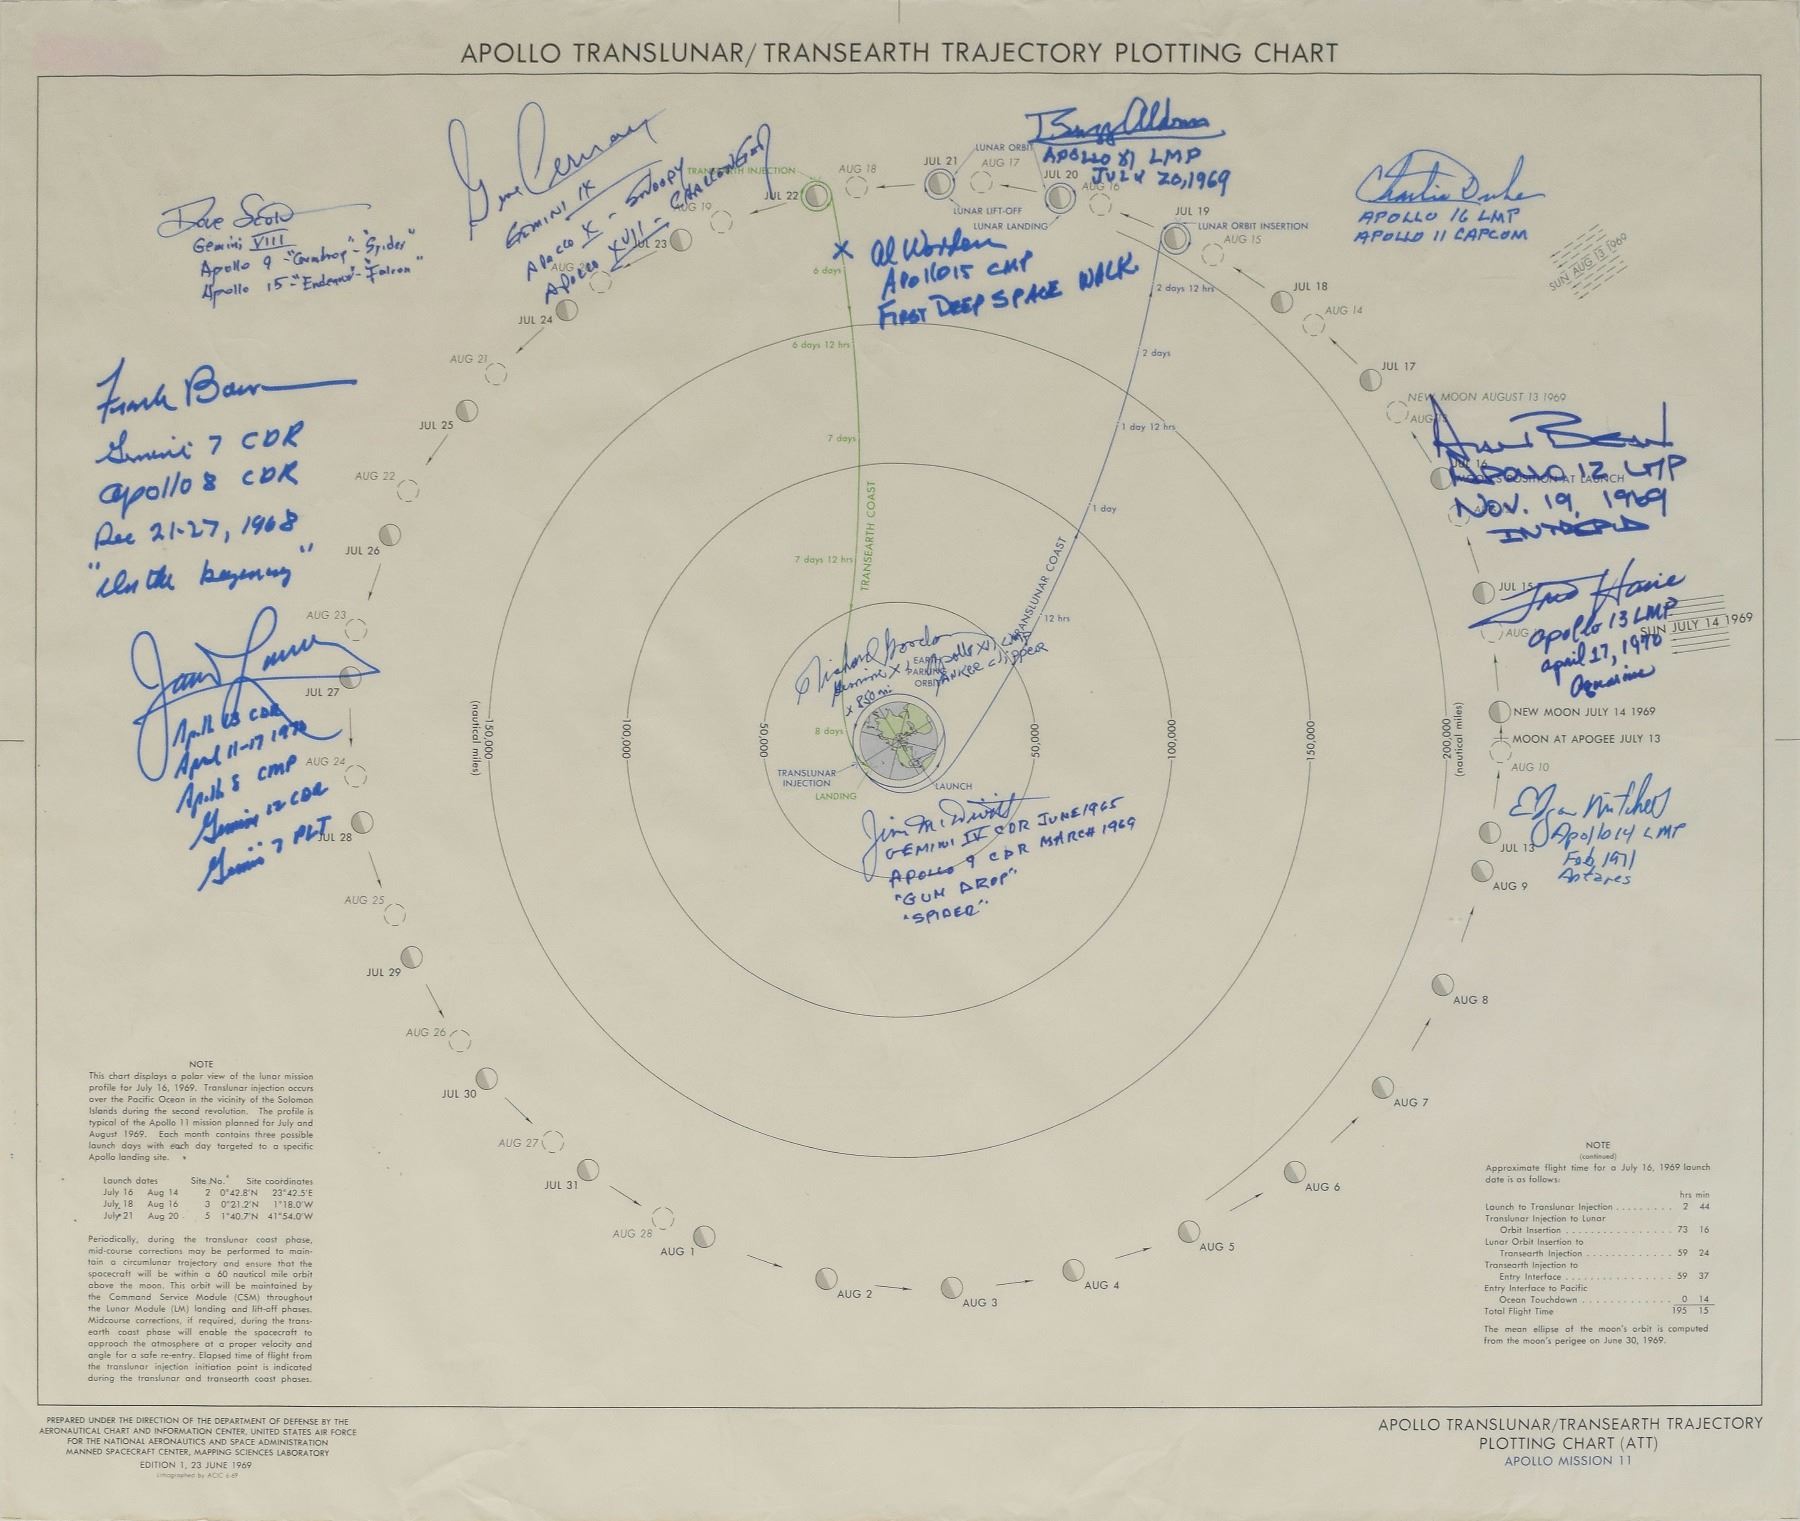 APOLLO TRANSLUNAR/TRANSEARTH TRAJECTORY PLOTTING CHART
Dave Scott
Gemini VIII
Apollo 9 - "Gumdrop" - "Spider"
Apollo 15 - "Endeavor" - "Falcon"
Gene Cernan
GEMINI IX
APOLLO X - SNOOPY
APOLLO XVII - CHALLENGER
Buzz Aldrin
APOLLO XI LMP
JULY 20, 1969
Charlie Duke
APOLLO 16 LMP
APOLLO 11 CAPCOM
SUN AUG 13 1969
X Al Worden
APOLLO 15 CMP
FIRST DEEP SPACE WALK
TRANSEARTH INJECTION
JUL 22
AUG 18
JUL 21
LUNAR ORBIT
AUG 17
LUNAR LIFT-OFF
LUNAR LANDING
JUL 20
AUG 16
JUL 19
LUNAR ORBIT INSERTION
AUG 15
JUL 18
AUG 14
JUL 17
NEW MOON AUGUST 13 1969
AUG 19
JUL 23
AUG 20
JUL 24
AUG 21
JUL 25
AUG 22
JUL 26
AUG 23
JUL 27
AUG 24
JUL 28
AUG 25
JUL 29
AUG 26
JUL 30
AUG 27
JUL 31
AUG 28
AUG 1
AUG 2
AUG 3
AUG 4
AUG 5
AUG 6
AUG 7
AUG 8
AUG 9
JUL 13
AUG 10
MOON AT APOGEE JULY 13
NEW MOON JULY 14 1969
AUG
JUL 15
SUN JULY 14 1969
JUL 16
MOON'S POSITION AT LAUNCH
Frank Borman
Gemini 7 CDR
Apollo 8 CDR
Dec 21-27, 1968
"In the beginning"
James Lovell
Apollo 13 CDR
April 11-17 1970
Apollo 8 CMP
Gemini 12 CDR
Gemini 7 PLT
Alan Bean
APOLLO 12 LMP
NOV. 19, 1969
INTREPID
Fred Haise
Apollo 13 LMP
April 17, 1970
Aquarius
Edgar Mitchell
Apollo 14 LMP
Feb 1971
Antares
6 days
6 days 12 hrs
7 days
7 days 12 hrs
8 days
TRANSEARTH COAST
2 days 12 hrs
2 days
1 day 12 hrs
1 day
12 hrs
TRANSLUNAR COAST
Richard Gordon
Gemini XI Apollo XII CMP
X 850 mi YANKEE CLIPPER
EARTH
PARKING
ORBIT
TRANSLUNAR
INJECTION
LANDING
LAUNCH
(nautical miles)
150,000
100,000
50,000
50,000
100,000
150,000
200,000
(nautical miles)
Jim McDivitt
GEMINI IV CDR JUNE 1965
APOLLO 9 CDR MARCH 1969
"GUM DROP"
"SPIDER"
NOTE
This chart displays a polar view of the lunar mission
profile for July 16, 1969. Translunar injection occurs
over the Pacific Ocean in the vicinity of the Solomon
Islands during the second revolution. The profile is
typical of the Apollo 11 mission planned for July and
August 1969. Each month contains three possible
launch days with each day targeted to a specific
Apollo landing site.
Launch dates Site No. Site coordinates
July 16 Aug 14 2 0°42.8'N 23°42.5'E
July 18 Aug 16 3 0°21.2'N 1°18.0'W
July 21 Aug 20 5 1°40.7'N 41°54.0'W
Periodically, during the translunar coast phase,
mid-course corrections may be performed to main-
tain a circumlunar trajectory and ensure that the
spacecraft will be within a 60 nautical mile orbit
above the moon. This orbit will be maintained by
the Command Service Module (CSM) throughout
the Lunar Module (LM) landing and lift-off phases.
Midcourse corrections, if required, during the trans-
earth coast phase will enable the spacecraft to
approach the atmosphere at a proper velocity and
angle for a safe re-entry. Elapsed time of flight from
the translunar injection initiation point is indicated
during the translunar and transearth coast phases.
NOTE
(continued)
Approximate flight time for a July 16, 1969 launch
date is as follows:
hrs min
Launch to Translunar Injection . . . . . . . . . 2 44
Translunar Injection to Lunar
Orbit Insertion . . . . . . . . . . . . . . 73 16
Lunar Orbit Insertion to
Transearth Injection . . . . . . . . . . . . 59 24
Transearth Injection to
Entry Interface . . . . . . . . . . . . . . 59 37
Entry Interface to Pacific
Ocean Touchdown . . . . . . . . . . . . 0 14
Total Flight Time 195 15
The mean ellipse of the moon's orbit is computed
from the moon's perigee on June 30, 1969.
PREPARED UNDER THE DIRECTION OF THE DEPARTMENT OF DEFENSE BY THE
AERONAUTICAL CHART AND INFORMATION CENTER, UNITED STATES AIR FORCE
FOR THE NATIONAL AERONAUTICS AND SPACE ADMINISTRATION
MANNED SPACECRAFT CENTER, MAPPING SCIENCES LABORATORY
EDITION 1, 23 JUNE 1969
Lithographed by ACIC 6-69
APOLLO TRANSLUNAR/TRANSEARTH TRAJECTORY
PLOTTING CHART (ATT)
APOLLO MISSION 11